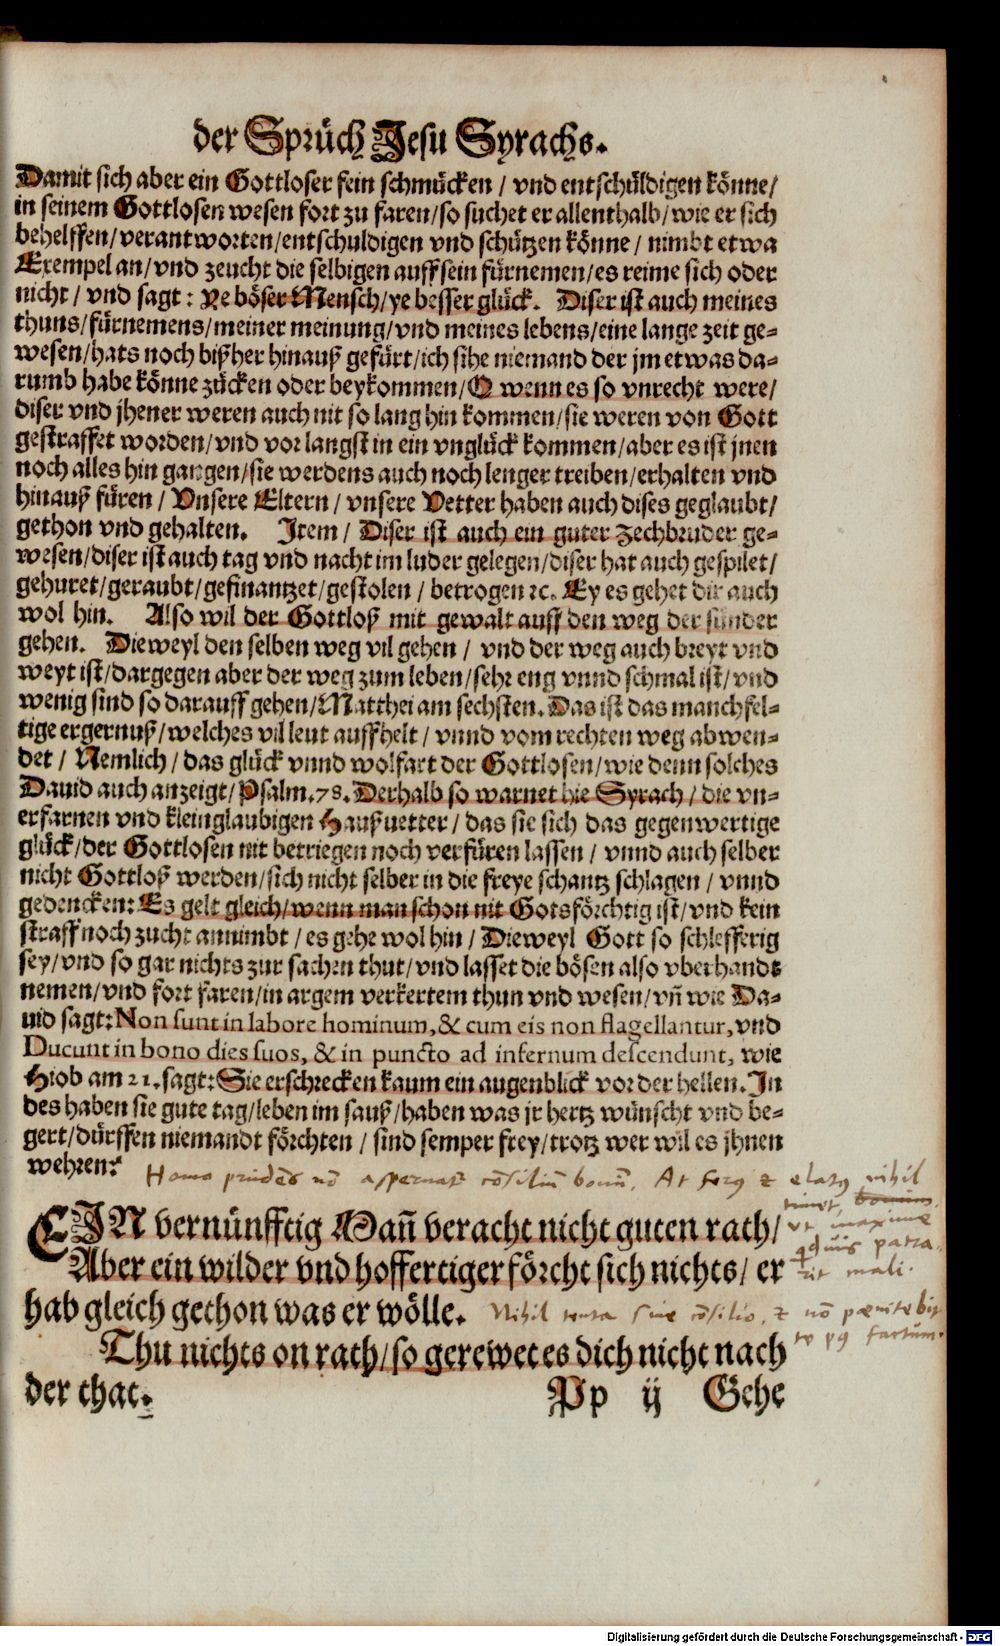 der Sprüch Jesu Syrachs.
Damit sich aber ein Gottloser fein schmücken / vnd entschüldigen könne/
in seinem Gottlosen wesen fort zu faren/so suchet er allenthalb/wie er sich
behelffen/verantworten/entschuldigen vnd schützen könne / nimbt etwa
Exempel an/vnd zeucht die selbigen auff sein fürnemen/es reime sich oder
nicht / vnd sagt: Ye böser Mensch/ye besser glück. Diser ist auch meines
thuns/fürnemens/meiner meinung/vnd meines lebens/eine lange zeit ge-
wesen/hats noch bißher hinauß gefürt/ich sihe niemand der jm etwas da-
rumb habe könne zücken oder beykommen/O wenn es so vnrecht were/
diser vnd jhener weren auch nit so lang hin kommen/sie weren von Gott
gestraffet worden/vnd vor langst in ein vnglück kommen/aber es ist jnen
noch alles hin gangen/sie werdens auch noch lenger treiben/erhalten vnd
hinauß füren / Vnsere Eltern / vnsere Vetter haben auch dises geglaubt/
gethon vnd gehalten. Item / Diser ist auch ein guter zechbruder ge-
wesen/diser ist auch tag vnd nacht im luder gelegen/diser hat auch gespilet/
gehuret/geraubt/gefinantzet/gestolen / betrogen ꝛc. Ey es gehet dir auch
wol hin. Also wil der Gottloß mit gewalt auff den weg der sünder
gehen. Dieweyl den selben weg vil gehen / vnd der weg auch breyt vnd
weyt ist/dargegen aber der weg zum leben/sehr eng vnnd schmal ist/vnd
wenig sind so darauff gehen/Matthei am sechsten. Das ist das manchfel-
tige ergernuß/welches vil leut auffhelt / vnnd vom rechten weg abwen-
det / Nemlich / das glück vnnd wolfart der Gottlosen/wie denn solches
Dauid auch anzeigt/Psalm.78. Derhalb so warnet hie Syrach / die vn-
erfarnen vnd kleinglaubigen Haußuetter / das sie sich das gegenwertige
glück/der Gottlosen nit betriegen noch verfüren lassen / vnnd auch selber
nicht Gottloß werden/sich nicht selber in die freye schantz schlagen / vnnd
gedencken: Es gelt gleich/wenn man schon nit Gotsförchtig ist/vnd kein
straff noch zucht annimbt / es gehe wol hin / Dieweyl Gott so schlefferig
sey/vnd so gar nichts zur sachen thut/vnd lasset die bösen also vberhandt
nemen/vnd fort faren/in argem verkertem thun vnd wesen/vñ wie Da-
uid sagt: Non sunt in labore hominum, & cum eis non flagellantur, vnd
Ducunt in bono dies suos, & in puncto ad infernum descendunt, wie
Hiob am 21. sagt: Sie erschrecken kaum ein augenblick vor der hellen. In
des haben sie gute tag/leben im sauß/haben was jr hertz wünscht vnd be-
gert/dürffen niemandt förchten / sind semper frey/trotz wer wil es jhnen
wehren?
Homo prudẽs nõ aspernat' cõsiliũ bonũ. At ferꝰ & elatꝰ nihil
timet,
vt maxime
quis patra-
rit mali.
EIN vernünfftig Mañ veracht nicht guten rath/
Aber ein wilder vnd hoffertiger förcht sich nichts/ er
hab gleich gethon was er wölle.
Nihil tenta sine cõsilio, & nõ pœnitebit
te pꝰ factum.
Thu nichts on rath/so gerewet es dich nicht nach
der that.
Pp ij Gehe
Digitalisierung gefördert durch die Deutsche Forschungsgemeinschaft - DFG